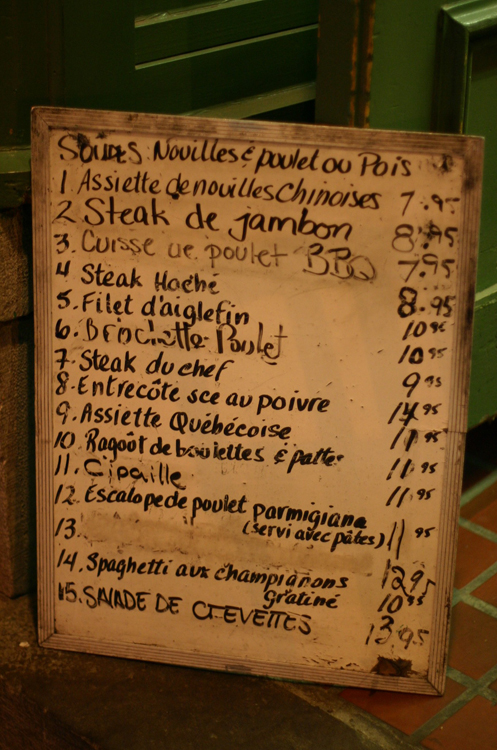 SOUPES: Nouilles & poulet ou Pois
1 Assiette de nouilles Chinoises 7.95
2 Steak de jambon 8.95
3. Cuisse de poulet BBQ 7.95
4 Steak Haché 8.95
5. Filet d'aiglefin 10 95
6. Brochette Poulet 10 95
7. Steak du chef 9 95
8. Entrecôte sce au poivre 14 95
9. Assiette Québécoise 11 95
10. Ragoût de boulettes & patte 11 95
11. Cipaille 11 95
12. Escalope de poulet parmigiana
(servi avec pâtes) 11 95
13. 12 95
14. Spaghetti aux champignons
Gratiné 10 95
15. SALADE DE CREVETTES 13.95